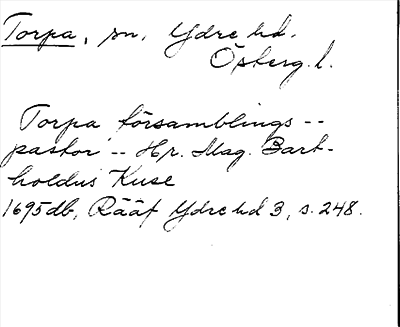 Torpa, sn, Ydre hd.
Östberg. l.
Torpa församblings --
pastor -- Hr. Mag. Bart-
holdus Kuse
1695 db, Rääf Ydre hd 3, s. 248.